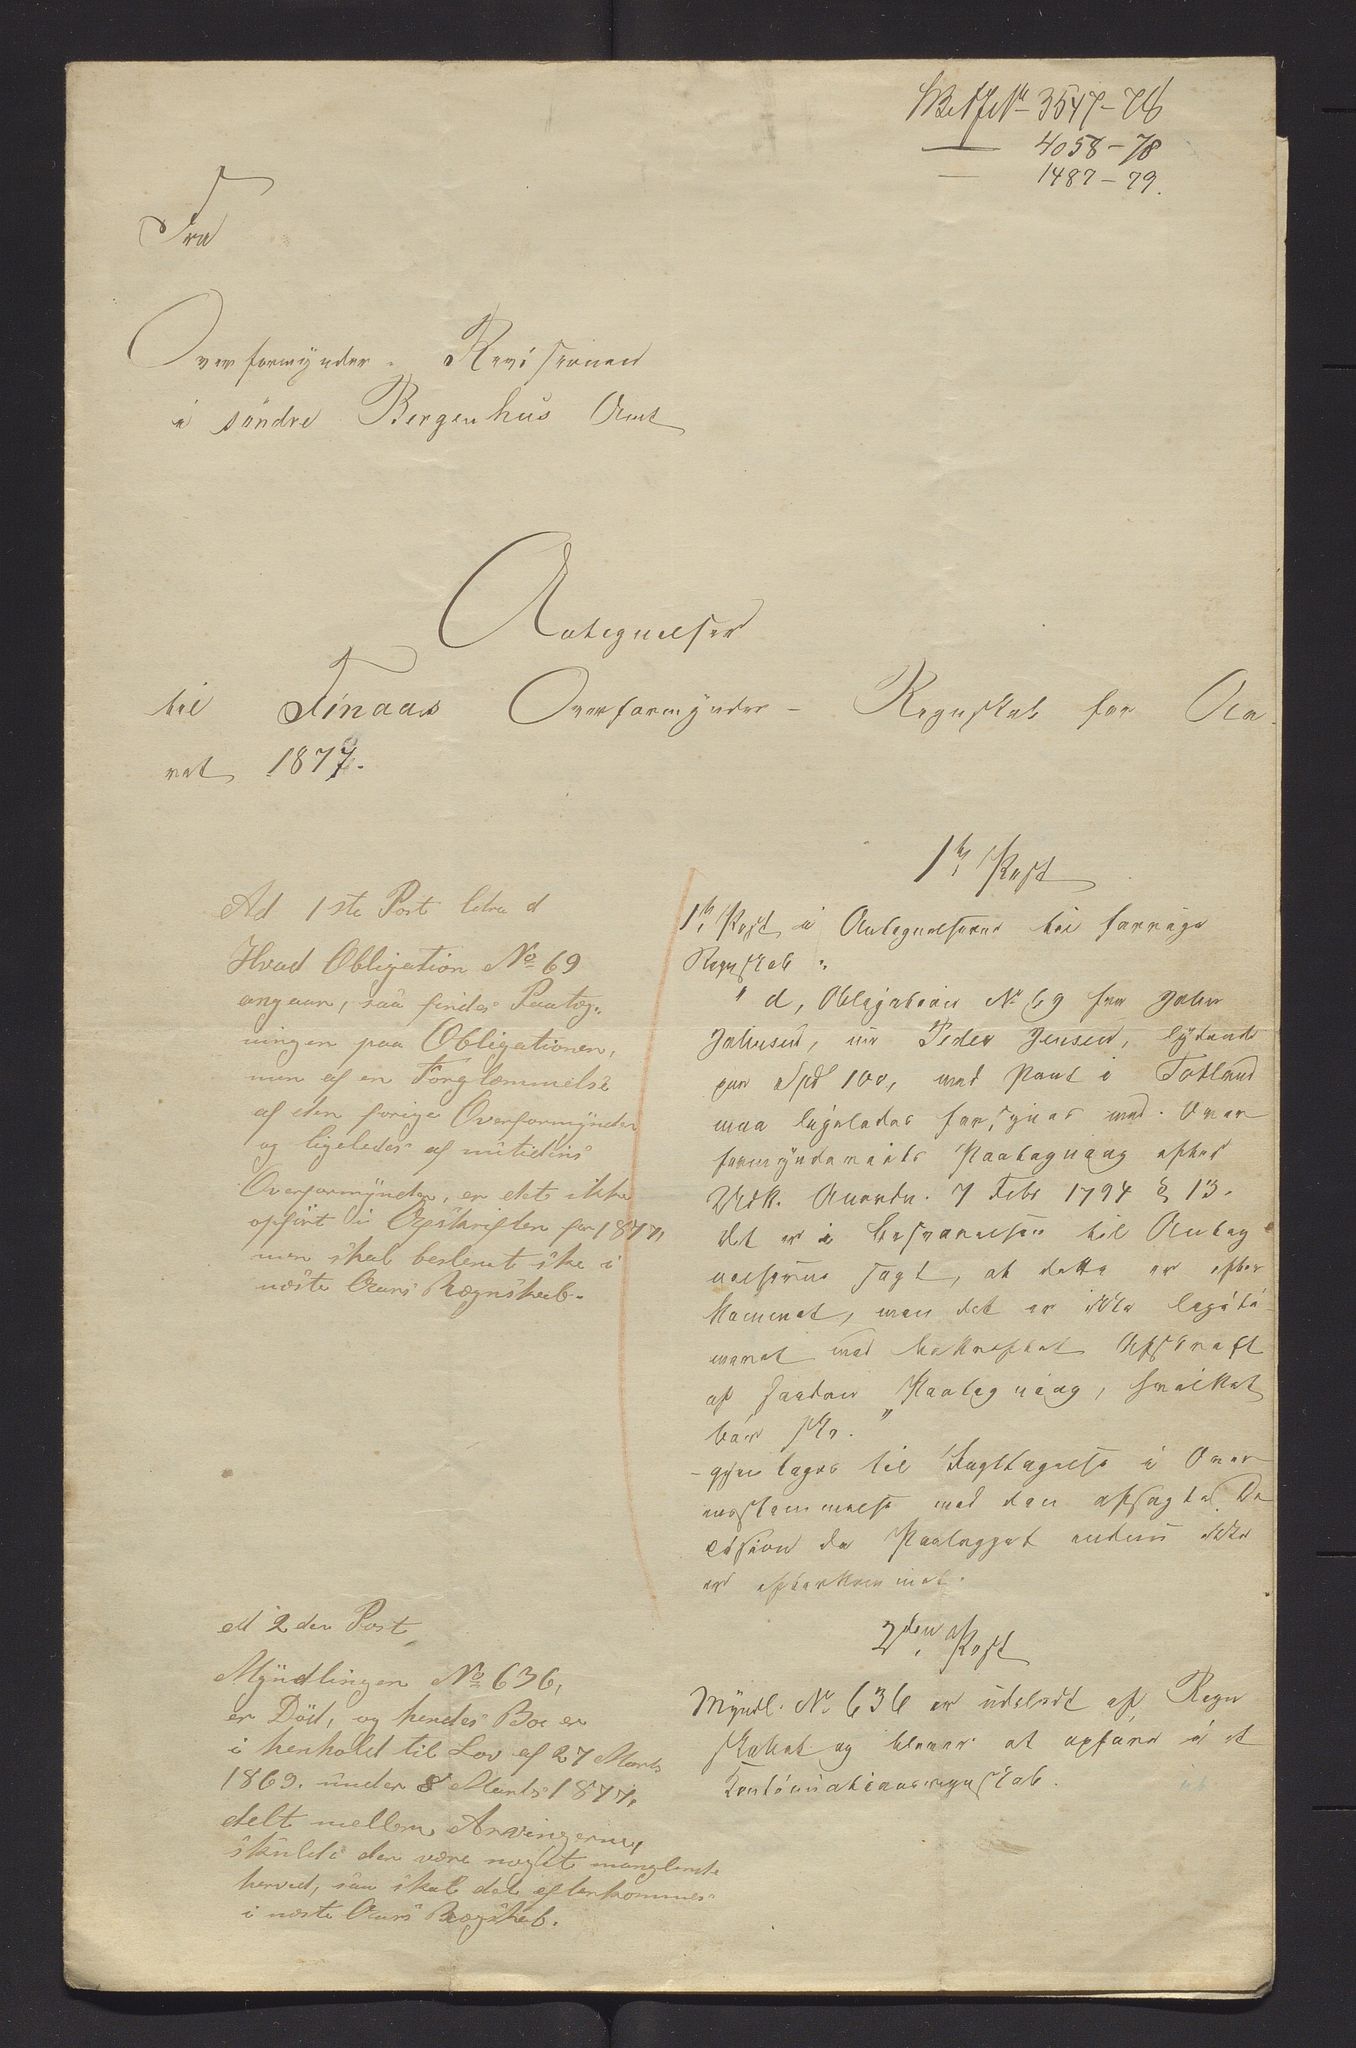 3547-78
4058-78
1487-79.
Fra
Overformynder-Revisionen
i söndre Bergenhus Amt
Antegnelser
til Finaas Overformynder-Regnskab for Aa-
ret 1877.
Ad 1ste Post litra d
Hvad Obligation No 69
angaar, saa findes Paateg-
ningen paa Obligationen,
men af en Forglemmelse
af den forige Overformynder
og ligeledes af nutidens
Overformynder, er det ikke
opfört i Afskriften for 1877,
men skal bestemt ske i
næste Aars Regnskab.
ad 2den Post
Myndlingen No 636,
er Död, og hendes Boe er
i henhold til Lov af 27 Marts
1869. under 8 Marts 1877,
delt mellem Arvingerne,
skulde der være noget manglende
herved, saa skal det efterkommes
i næste Aars Regnskab.
1ste Post
1ste Post i Antegnelserne til forrige
Regnskab:
"d, Obligation No 69 fra John
Johnsen, nu Peder Jensen, lydende
paa Spd 100, med Pant i Totland
maa ligeledes forsynes med Over-
formynderiets Paategning efter
Anordn. 7 Febr 1794 § 13.
det er i Besvarelsen til Anteg-
nelserne sagt, at dette er efter-
kommet, men det er ikke legiti-
meret med bekræftet Afskrift
af saadan Paategning, hvilket
bör ske."
-gjentages til Iagttagelse i Over-
ensstemmelse med den afsagte De-
cision da Paalægget endnu ikke
er efterkommet.
2den Post
Myndl. No 636 er udeladt af Regn-
skabet og bliver at opföre i et
Kontinuationsregnskab.